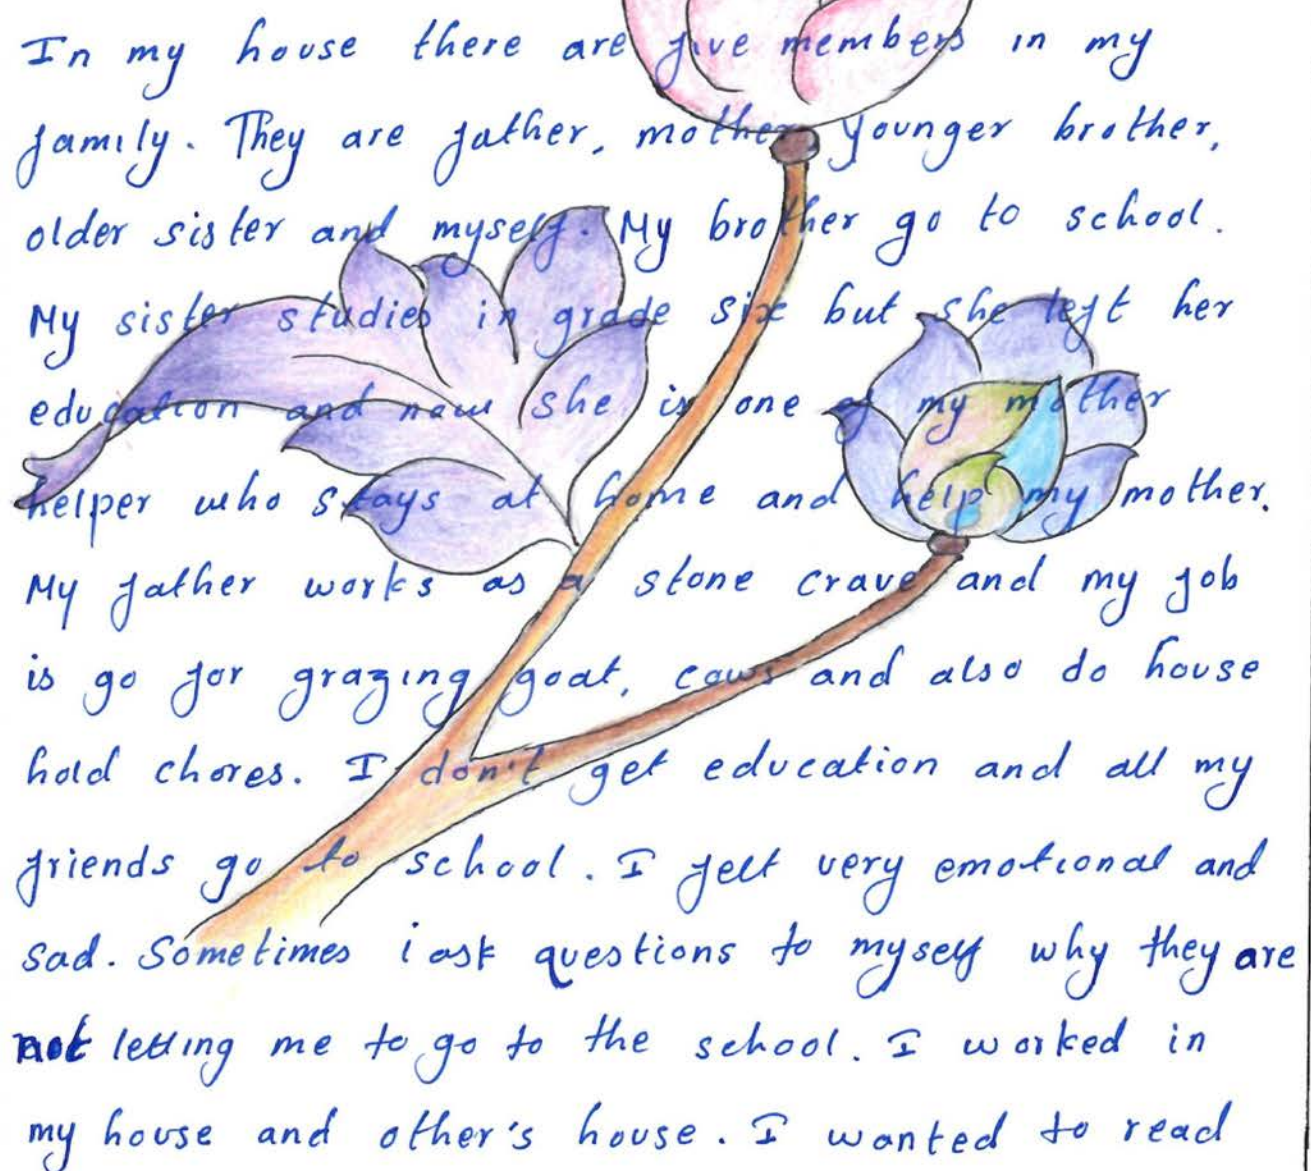 In my house there are five members in my
family. They are father, mother, younger brother,
older sister and myself. My brother go to school.
My sister studied in grade six but she left her
education and now she is one of my mother
helper who stays at home and help my mother.
My father works as a stone crave and my job
is go for grazing goat, cows and also do house
hold chores. I don't get education and all my
friends go to school. I felt very emotional and
sad. Sometimes i ask questions to myself why they are
not letting me to go to the school. I worked in
my house and other's house. I wanted to read